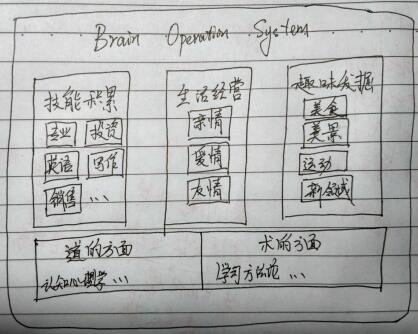 Brain Operation System
技能积累
专业 投资
英语 写作
销售 ...
生活经营
亲情
爱情
友情
趣味发掘
美食
美景
运动
新领域
道的方面
认知心理学...
术的方面
学习方法论...